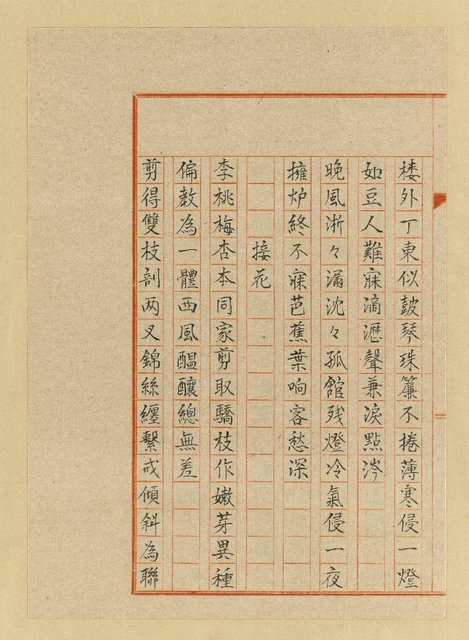 楼外丁東似鼓琴珠簾不捲薄寒侵一燈
如豆人難寐滴瀝聲兼淚點涔
晚風淅々漏沈々孤館残燈冷氣侵一夜
擁炉終不寐芭蕉葉响客愁深
接花
李桃梅杏本同家剪取驕枝作嫩芽異種
偏教為一體西風醞釀總無差
剪得雙枝剖两叉錦絲纏繫戒傾斜為聯